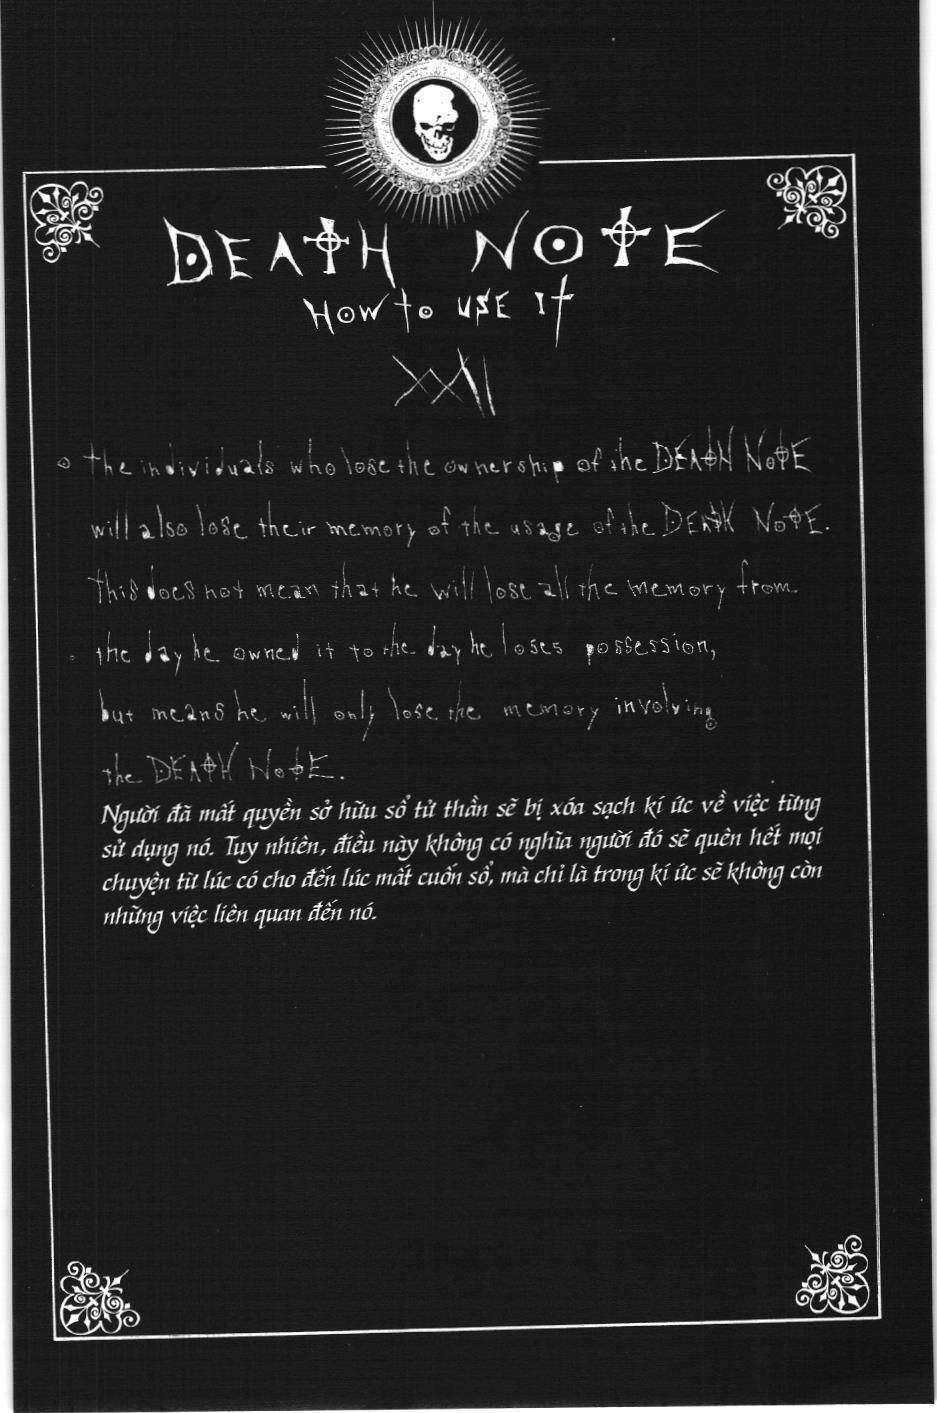 DEATH NOTE
HOW to USE It
XXII
the individuals who lose the ownership of the DEATH NOTE
will also lose their memory of the usage of the DEATH NOTE.
this does not mean that he will lose all the memory from
the day he owned it to the day he loses possession,
but means he will only lose the memory involving
the DEATH NOTE.
Người đã mất quyền sở hữu sổ tử thần sẽ bị xóa sạch kí ức về việc từng
sử dụng nó. Tuy nhiên, điều này không có nghĩa người đó sẽ quên hết mọi
chuyện từ lúc có cho đến lúc mất cuốn sổ, mà chỉ là trong kí ức sẽ không còn
những việc liên quan đến nó.